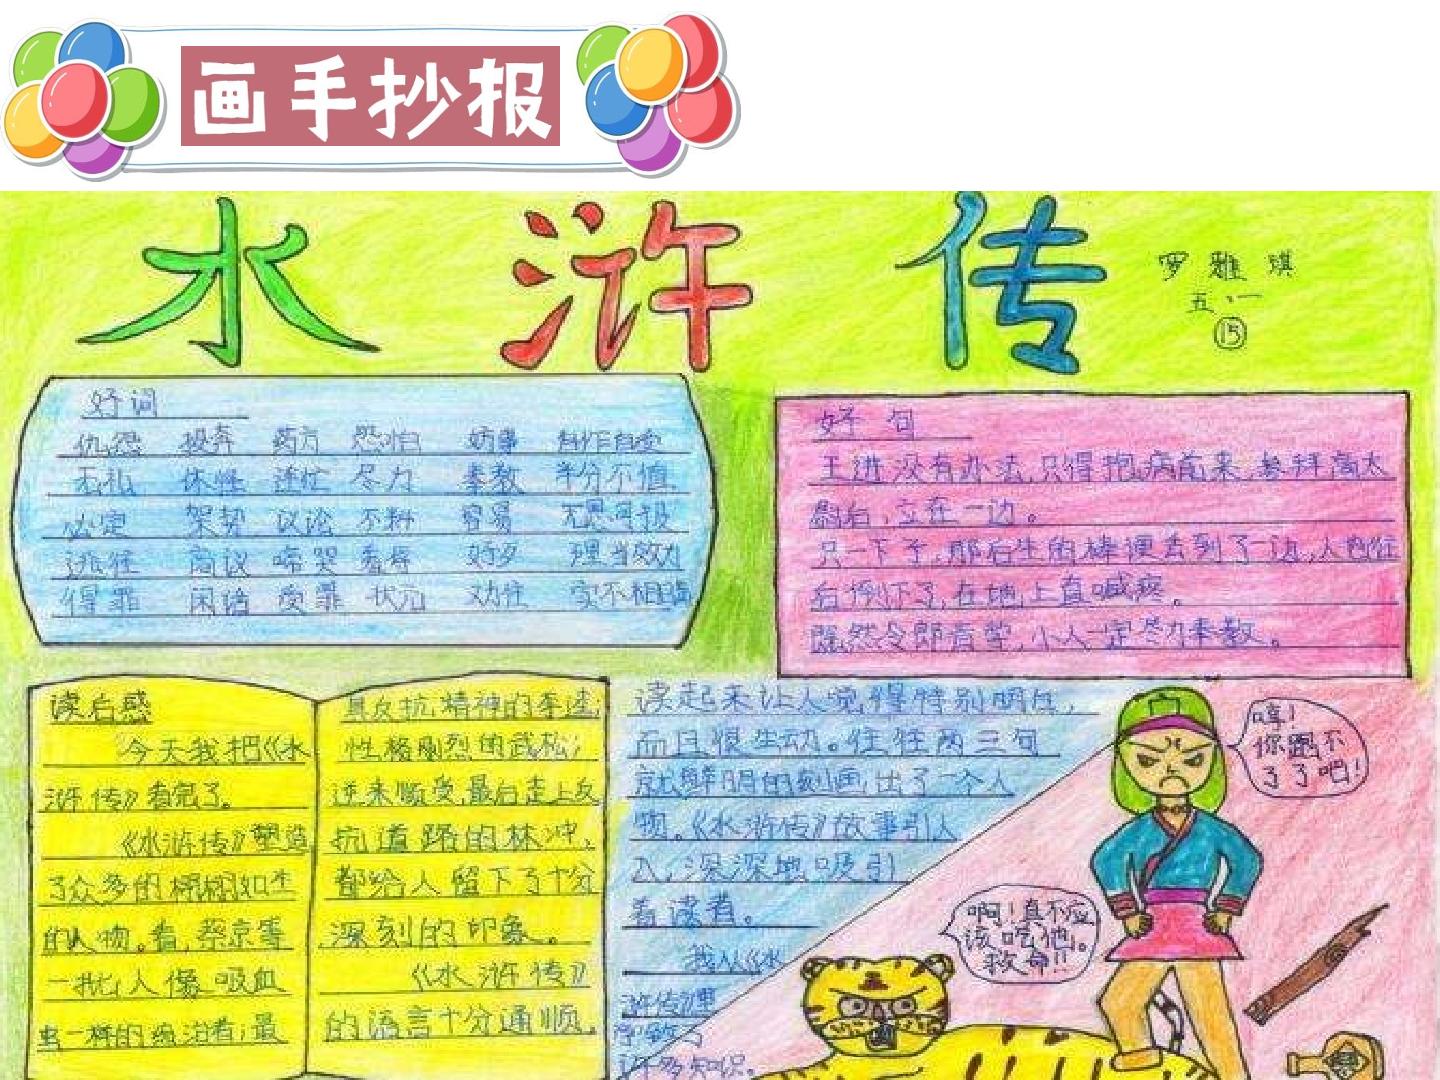 画手抄报
水浒传
罗雅琪
五.一
15
好词
仇怨 投奔 药方 恐怕 妨事 自作自受
无礼 休怪 连忙 尽力 奉教 半分不值
必定 架势 议论 不料 容易 无恩可报
逃往 商议 啼哭 看样 好歹 理当效力
得罪 闲话 受罪 状元 劝住 实不相瞒
好句
王进没有办法,只得抱病前来,参拜高太
尉后,立在一边。
只一下子,那后生的棒便丢到了一边,人也往
后倒下了,在地上直喊疼。
既然令郎肯学,小人一定尽力奉教。
读后感
今天我把《水
浒传》看完了。
《水浒传》塑造
了众多的栩栩如生
的人物。看,蔡京等
一批人像吸血
虫一样的统治者;最
具反抗精神的李逵;
性格刚烈的武松;
逆来顺受,最后走上反
抗道路的林冲,
都给人留下了十分
深刻的印象。
《水浒传》
的语言十分通顺,
读起来让人觉得特别明白,
而且很生动。往往两三句
就鲜明的刻画出了一个人
物。《水浒传》故事引人
入,深深地吸引
着读者。
我从《水
浒传》里
学到了
许多知识。
哼!
你跑不
了了吧!
啊!真不应
该吃他。
救命!!